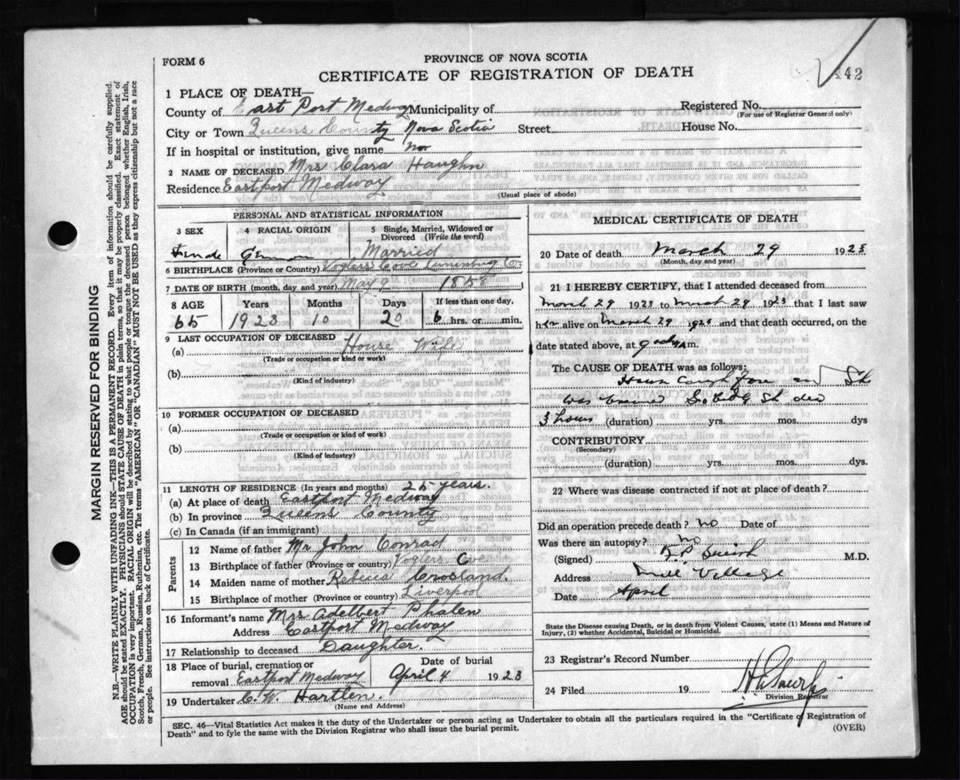 FORM 6
PROVINCE OF NOVA SCOTIA
CERTIFICATE OF REGISTRATION OF DEATH
42
1 PLACE OF DEATH—
County of East Port Medway Municipality of
Registered No.
(For use of Registrar General only)
City or Town Queens County Nova Scotia Street House No.
If in hospital or institution, give name
2 NAME OF DECEASED Mrs Clara Haughn
Residence Eastport Medway
(Usual place of abode)
PERSONAL AND STATISTICAL INFORMATION
3 SEX 4 RACIAL ORIGIN 5 Single, Married, Widowed or Divorced (Write the word)
German Married
6 BIRTHPLACE (Province or Country) Voglers Cove Lunenburg Co
7 DATE OF BIRTH (month, day, and year) May 1858
8 AGE Years Months Days If less than one day,
65 1923 10 20 6 hrs. or min.
9 LAST OCCUPATION OF DECEASED House Wife
(a)
(Trade or occupation or kind or work)
(b)
(Kind of industry)
10 FORMER OCCUPATION OF DECEASED
(a)
(Trade or occupation or kind of work)
(b)
(Kind of industry)
11 LENGTH OF RESIDENCE (In years and months) 25 years.
(a) At place of death Eastport Medway
(b) In province Queens County
(c) In Canada (if an immigrant)
Parents
12 Name of father Mr John Conrad
13 Birthplace of father (Province or country) Voglers Cove
14 Maiden name of mother Rebeca Crosland
15 Birthplace of mother (Province or country) Liverpool
16 Informant's name Mrs Adelbert Phalen
Address Eastport Medway
17 Relationship to deceased Daughter.
18 Place of burial, cremation or removal Eastport Medway
Date of burial April 4 1923
19 Undertaker C. W. Hartlen.
(Name and Address)
MEDICAL CERTIFICATE OF DEATH
20 Date of death March 29 1923
(Month, day and year)
21 I HEREBY CERTIFY, that I attended deceased from
March 29 1923 to March 29 1923 that I last saw
her alive on March 29 1923 and that death occurred, on
date stated above, at m.
The CAUSE OF DEATH was as follows:
3 hours (duration) yrs. mos. dys
CONTRIBUTORY
(Secondary)
(duration) yrs. mos. dys.
22 Where was disease contracted if not at place of death?
Did an operation precede death? no Date of
Was there an autopsy? no
(Signed) Smith M.D.
Address Mill Village
Date April
State the Disease causing Death, or in death from Violent Causes, state (1) Means and Nature of
Injury, (2) whether Accidental, Suicidal or Homicidal.
23 Registrar's Record Number
24 Filed 19
Division Registrar
SEC. 46—Vital Statistics Act makes it the duty of the Undertaker or person acting as Undertaker to obtain all the particulars required in the "Certificate of Registration of
Death" and to fyle the same with the Division Registrar who shall issue the burial permit.
(OVER)
MARGIN RESERVED FOR BINDING
N.B.—WRITE PLAINLY WITH UNFADING INK—THIS IS A PERMANENT RECORD. Every item of information should be carefully supplied.
AGE should be stated EXACTLY. PHYSICIANS should STATE CAUSE OF DEATH in plain terms, so that it may be properly classified. Exact statement of
OCCUPATION is very important. RACIAL ORIGIN will be described by stating to what people or tongue the deceased person belonged whether English, Irish,
Scotch, French, German, Russian, Ruthenian, etc. The terms "AMERICAN" or "CANADIAN" MUST NOT BE USED as they express citizenship but not a race
or people. See instructions on back of Certificate.